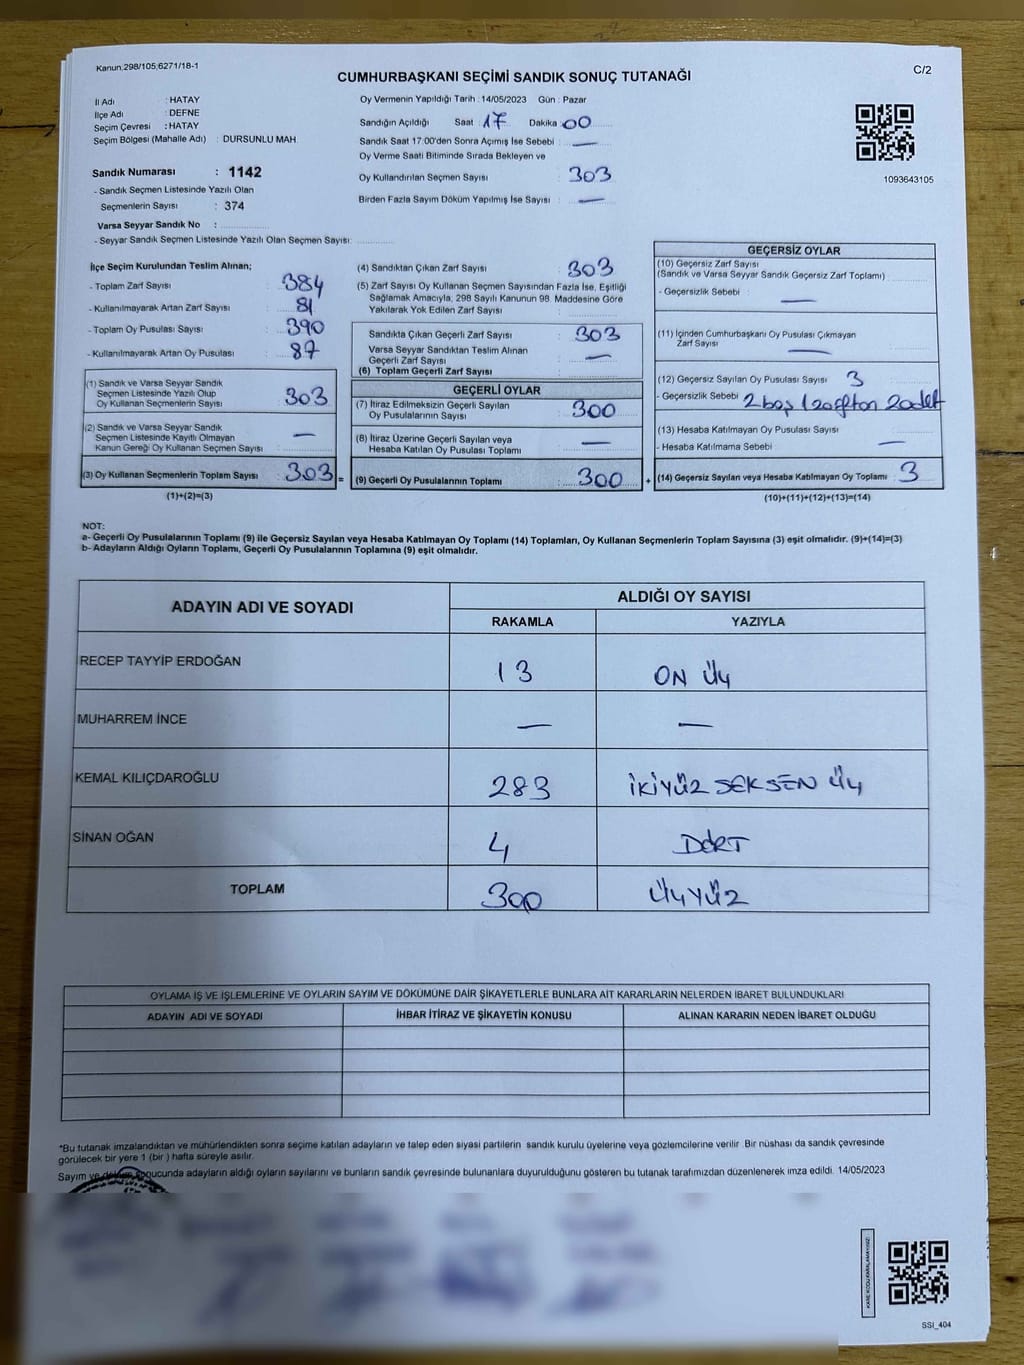 Kanun.298/105,6271/18-1
C/2
CUMHURBAŞKANI SEÇİMİ SANDIK SONUÇ TUTANAĞI
İl Adı : HATAY
İlçe Adı : DEFNE
Seçim Çevresi : HATAY
Seçim Bölgesi (Mahalle Adı) : DURSUNLU MAH.
Sandık Numarası : 1142
- Sandık Seçmen Listesinde Yazılı Olan
Seçmenlerin Sayısı : 374
Varsa Seyyar Sandık No :
- Seyyar Sandık Seçmen Listesinde Yazılı Olan Seçmen Sayısı:
Oy Vermenin Yapıldığı Tarih : 14/05/2023 Gün : Pazar
Sandığın Açıldığı Saat : 17 Dakika : 00
Sandık Saat 17:00'den Sonra Açımış İse Sebebi : —
Oy Verme Saati Bitiminde Sırada Bekleyen ve
Oy Kullandırılan Seçmen Sayısı : 303
Birden Fazla Sayım Döküm Yapılmış İse Sayısı : —
1093643105
İlçe Seçim Kurulundan Teslim Alınan;
- Toplam Zarf Sayısı : 384
- Kullanılmayarak Artan Zarf Sayısı : 81
- Toplam Oy Pusulası Sayısı : 390
- Kullanılmayarak Artan Oy Pusulası : 87
(1) Sandık ve Varsa Seyyar Sandık
Seçmen Listesinde Yazılı Olup
Oy Kullanan Seçmenlerin Sayısı : 303
(2) Sandık ve Varsa Seyyar Sandık
Seçmen Listesinde Kayıtlı Olmayan
Kanun Gereği Oy Kullanan Seçmen Sayısı : —
(3) Oy Kullanan Seçmenlerin Toplam Sayısı : 303
(1)+(2)=(3)
(4) Sandıktan Çıkan Zarf Sayısı : 303
(5) Zarf Sayısı Oy Kullanan Seçmen Sayısından Fazla İse, Eşitliği
Sağlamak Amacıyla, 298 Sayılı Kanunun 98. Maddesine Göre
Yakılarak Yok Edilen Zarf Sayısı :
Sandıkta Çıkan Geçerli Zarf Sayısı : 303
Varsa Seyyar Sandıktan Teslim Alınan
Geçerli Zarf Sayısı : —
(6) Toplam Geçerli Zarf Sayısı :
GEÇERLİ OYLAR
(7) İtiraz Edilmeksizin Geçerli Sayılan
Oy Pusulalarının Sayısı : 300
(8) İtiraz Üzerine Geçerli Sayılan veya
Hesaba Katılan Oy Pusulası Toplamı : —
= (9) Geçerli Oy Pusulalarının Toplamı : 300
GEÇERSİZ OYLAR
(10) Geçersiz Zarf Sayısı
(Sandık ve Varsa Seyyar Sandık Geçersiz Zarf Toplamı) :
- Geçersizlik Sebebi : —
(11) İçinden Cumhurbaşkanı Oy Pusulası Çıkmayan
Zarf Sayısı : —
(12) Geçersiz Sayılan Oy Pusulası Sayısı : 3
- Geçersizlik Sebebi : 2 boş 2 adet
(13) Hesaba Katılmayan Oy Pusulası Sayısı :
- Hesaba Katılmama Sebebi : —
+ (14) Geçersiz Sayılan veya Hesaba Katılmayan Oy Toplamı : 3
(10)+(11)+(12)+(13)=(14)
NOT:
a- Geçerli Oy Pusulalarının Toplamı (9) ile Geçersiz Sayılan veya Hesaba Katılmayan Oy Toplamı (14) Toplamları, Oy Kullanan Seçmenlerin Toplam Sayısına (3) eşit olmalıdır. (9)+(14)=(3)
b- Adayların Aldığı Oyların Toplamı, Geçerli Oy Pusulalarının Toplamına (9) eşit olmalıdır.
ADAYIN ADI VE SOYADI ALDIĞI OY SAYISI
RAKAMLA YAZIYLA
RECEP TAYYİP ERDOĞAN 13 ON ÜÇ
MUHARREM İNCE — —
KEMAL KILIÇDAROĞLU 283 İKİYÜZ SEKSEN ÜÇ
SİNAN OĞAN 4 DÖRT
TOPLAM 300 ÜÇYÜZ
OYLAMA İŞ VE İŞLEMLERİNE VE OYLARIN SAYIM VE DÖKÜMÜNE DAİR ŞİKAYETLERLE BUNLARA AİT KARARLARIN NELERDEN İBARET BULUNDUKLARI
ADAYIN ADI VE SOYADI İHBAR İTİRAZ VE ŞİKAYETİN KONUSU ALINAN KARARIN NEDEN İBARET OLDUĞU
*Bu tutanak imzalandıktan ve mühürlendikten sonra seçime katılan adayların ve talep eden siyasi partilerin sandık kurulu üyelerine veya gözlemcilerine verilir. Bir nüshası da sandık çevresinde
görülecek bir yere 1 (bir) hafta süreyle asılır.
Sayım ve döküm sonucunda adayların aldığı oyların sayılarını ve bunların sandık çevresinde bulunanlara duyurulduğunu gösteren bu tutanak tarafımızdan düzenlenerek imza edildi. 14/05/2023
SSI_404